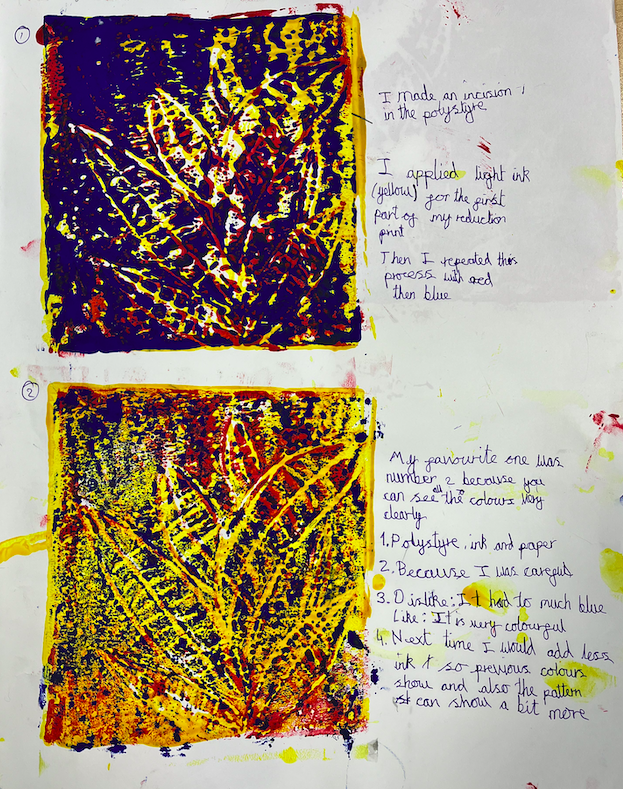 1
I made an incision
in the polystyre
I applied light ink
(yellow) for the first
part of my reduction
print
Then I repeated this
process with red
then blue
2
My favourite one was
number 2 because you
can see all the colours very
clearly
1. Polystyre, ink and paper
2. Because I was careful
3. Dislike: It had to much blue
Like: It is very colourful
4. Next time I would add less
ink so previous colours
show and also the pattern
can show a bit more